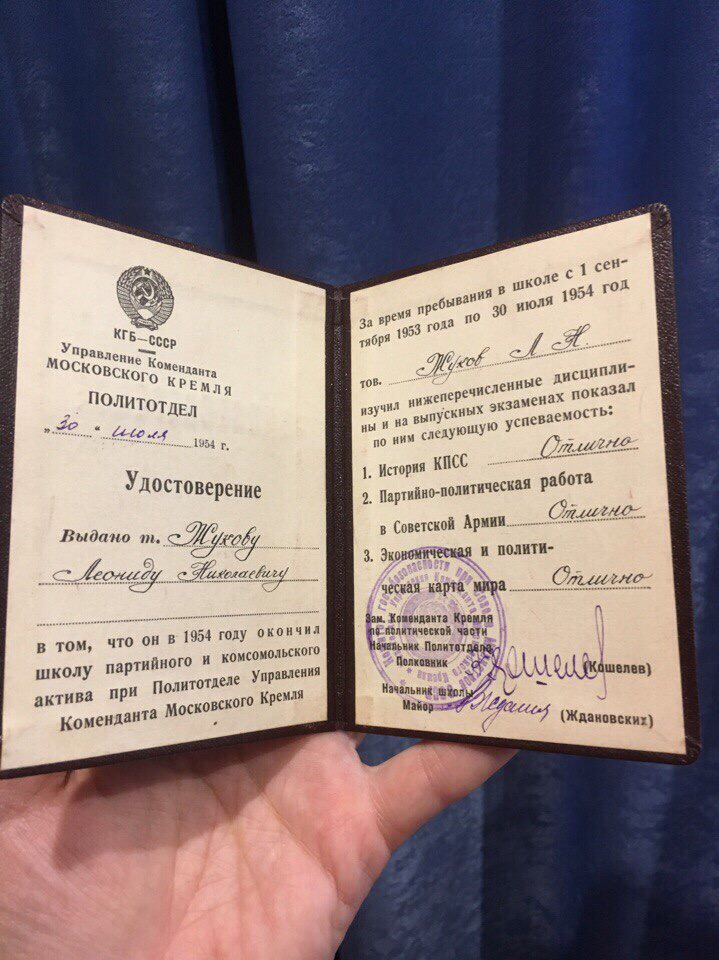 КГБ—СССР
Управление Коменданта
МОСКОВСКОГО КРЕМЛЯ
ПОЛИТОТДЕЛ
„30“ июля 1954 г.
Удостоверение
Выдано т. Жукову
Леониду Николаевичу
в том, что он в 1954 году окончил
школу партийного и комсомольского
актива при Политотделе Управления
Коменданта Московского Кремля
За время пребывания в школе с 1 сен-
тября 1953 года по 30 июля 1954 год
тов. Жуков Л Н
изучил нижеперечисленные дисципли-
ны и на выпускных экзаменах показал
по ним следующую успеваемость:
1. История КПСС Отлично
2. Партийно-политическая работа
в Советской Армии Отлично
3. Экономическая и полити-
ческая карта мира Отлично
Зам. Коменданта Кремля
по политической части
Начальник Политотдела
Полковник (Кошелев)
Начальник школы
Майор (Ждановских)